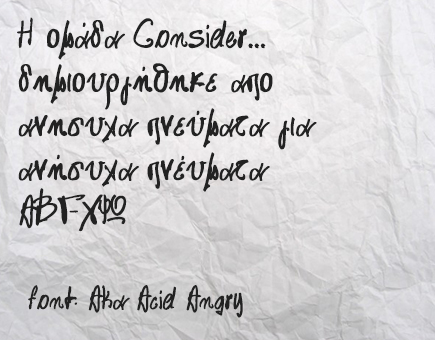 Η ομάδα Consider...
δημιουργήθηκε απο
ανησυχα πνεύματα για
ανήσυχα πνέυματα
ΑΒΓ-ΧΨΩ
font: Aka Acid Angry